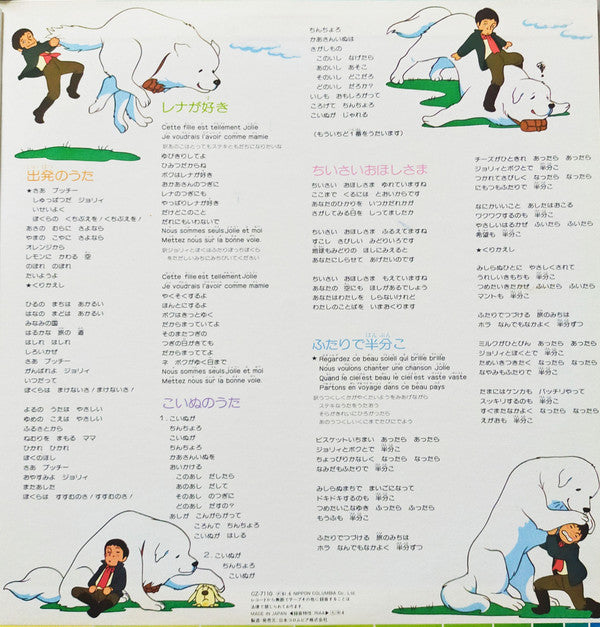 出発のうた
★さあ プッチー
しゅっぱつだ ジョリィ
いせいよく
ぼくらの くちぶえを/くちぶえを/
あきの むらに さよなら
やまの こやに さよなら
オレンジから
レモンに かわる 空
のぼれ のぼれ
たいようよ
★くりかえし
ひるの まちは あかるい
はなの まどは あかるい
みなみの国
はるかな 旅の 道
はしれ はしれ
しろいかぜ
さあ プッチー
がんばれよ ジョリィ
いつだって
ぼくらは まけないさ/まけないさ/
よるの うたは やさしい
ゆめの こえは やさしい
ふるさとから
ねむりを まもる ママ
ひかれ ひかれ
ぼくのほし
さあ プッチー
おやすみよ ジョリィ
またあした
ぼくらは すすむのさ/すすむのさ/
レナが好き
Cette fille est tellement Jolie
Je voudrais l'avoir comme mamie
ゆびきりしてよ
ひみつだからね
ボクはレナが好き
おかあさんのつぎに
レナのつぎにも
やっぱりレナが好き
だけどこのこと
だれにもいわないで
Nous sommes seuls Jolie et moi
Mettez nous sur la bonne voie.
Cette fille est tellement Jolie
Je voudrais l'avoir comme mamie
やくそくするよ
ほんとにするよ
ボクはきっとゆく
だからまっていてよ
そのまたつぎの
つぎの日がきても
だからまっててよ
ネ ボクがゆく日まで
Nous sommes seuls Jolie et moi
Mettez nous sur la bonne voie.
こいぬのうた
1. こいぬが
ちんちょろ
こいぬが
ちんちょろ
かあさんいぬを
おいかける
このあし だしたら
あのあし だして
そのあし のつぎに
どのあし だすの?
あしが こんがらがって
ころんで ちんちょろ
こいぬが ほえる
2. こいぬが
ちんちょろ
こいぬが
ちんちょろ
かあさんいぬは
さがしもの
このいし なげたら
あのいし あそこ
そのいし どこだろ
どのいし だろ?
いしも おもしろがって
ころげて ちんちょろ
こいぬが じゃれる
(もういちど1番をうたいます)
ちいさいおほしさま
ちいさい おほしさま ゆれていますね
ここまで くるには とおいからです
あなたのひかりを いつかだれかが
さがしてみる日を しってましたか
ちいさい おほしさま ふるえてますね
すこし さびしい みどりいろです
地球もみどりの ほしにみえると
あなたにしらせて あげたいのです
ちいさい おほしさま もえていますね
あなたの 空にも ほしがあるでしょう
あなたはわたしを しらないけれど
わたしのことばを いまおくります
ふたりで半分こ
はんぶん
★Regardez ce beau soleil qui brille brille
Nous voulons chanter une chanson Jolie
Quand le ciel est beau le ciel est vaste vaste
Partons en voyage dans ce beau pays
ビスケットいちまい あったら あったら
ジョリィとボクとで 半分こ
ちょっぴりかなしく なったら なったら
なみだもふたりで 半分こ
みしらぬまちで まいごになって
ドキドキするのも 半分こ
つめたいこなゆき ふったら ふったら
もうふも 半分こ
ふたりでつづける 旅のみちは
ホラ なんでもなかよく 半分ずつ
チーズがひときれ あったら あったら
ジョリィとボクとで 半分こ
つかれてさびしく なったら なったら
にもつもふたりで 半分こ
なにかいいこと あしたはおこる
ワクワクするのも 半分こ
やさしいはるかぜ ふいたら ふいたら
希望も 半分こ
★くりかえし
みしらぬひとに やさしくされて
うれしいきもちも 半分こ
つめたいきたかぜ ふいたら ふいたら
マントも 半分こ
ふたりでつづける 旅のみちは
ホラ なんでもなかよく 半分ずつ
ミルクがひとびん あったら あったら
ジョリィとぼくとで 半分こ
ためいきつきたく なったら なったら
なやみもふたりで 半分こ
たまにはケンカも バッチリやって
スッキリするのも 半分こ
すぐまたなかよく なったら なったら
えがおも 半分こ
CZ-7110 NIPPON COLUMBIA Co., Ltd.
MADE IN JAPAN
製造・発売元 日本コロムビア株式会社